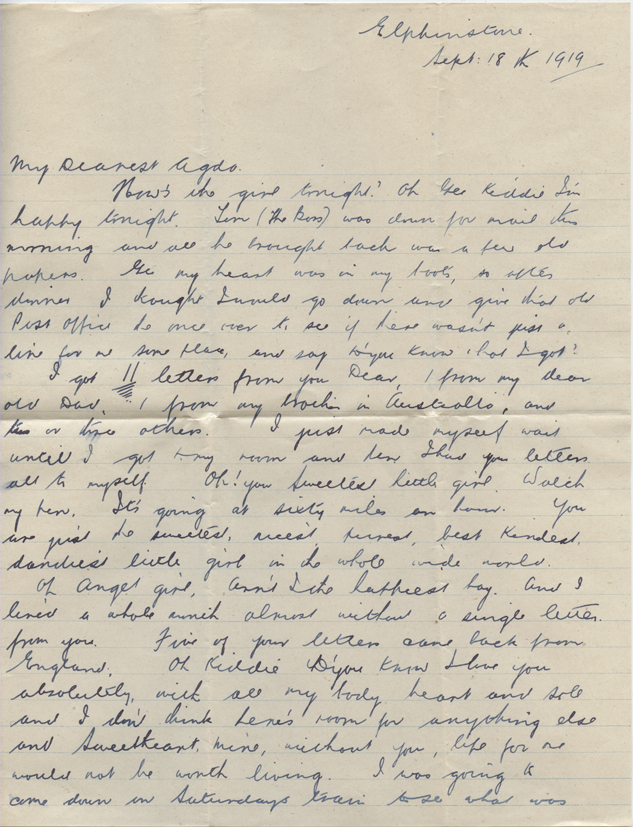 Elphinstone.
Sept: 18th 1919
My Dearest Agda.
How's the girl tonight? Oh Gee Kiddie I'm
happy tonight. Tom (The Boss) was down for mail this
morning and all he brought back was a few old
papers. Gee my heart was in my boots, so after
dinner I thought I would go down and give that old
Post Office the once over to see if there wasn't just a
line for me some place, and say D'you know what I got?
I got 11 letters from you Dear, 1 from my dear
old Dad, 1 from my brother in Australia, and
two or three others. I just made myself wait
until I got to my room and here I had you letters
all to myself Oh! you Sweetest little girl. Watch
my pen, It's going at sixty miles an hour. You
are just the sweetest, nicest, purest, best Kindest,
dandiest little girl in the whole wide world.
Oh Angel girl, Arn't I the happiest boy. And I
lived a whole month almost without a single letter
from you. Five of your letters came back from
England. Oh Kiddie D'you Know I love you
absolutely, with all my body, heart and sole
and I don't think there's room for anything else
and Sweetheart, Mine, without you, life for me
would not be worth living. I was going to
come down on Saturdays train to see what was